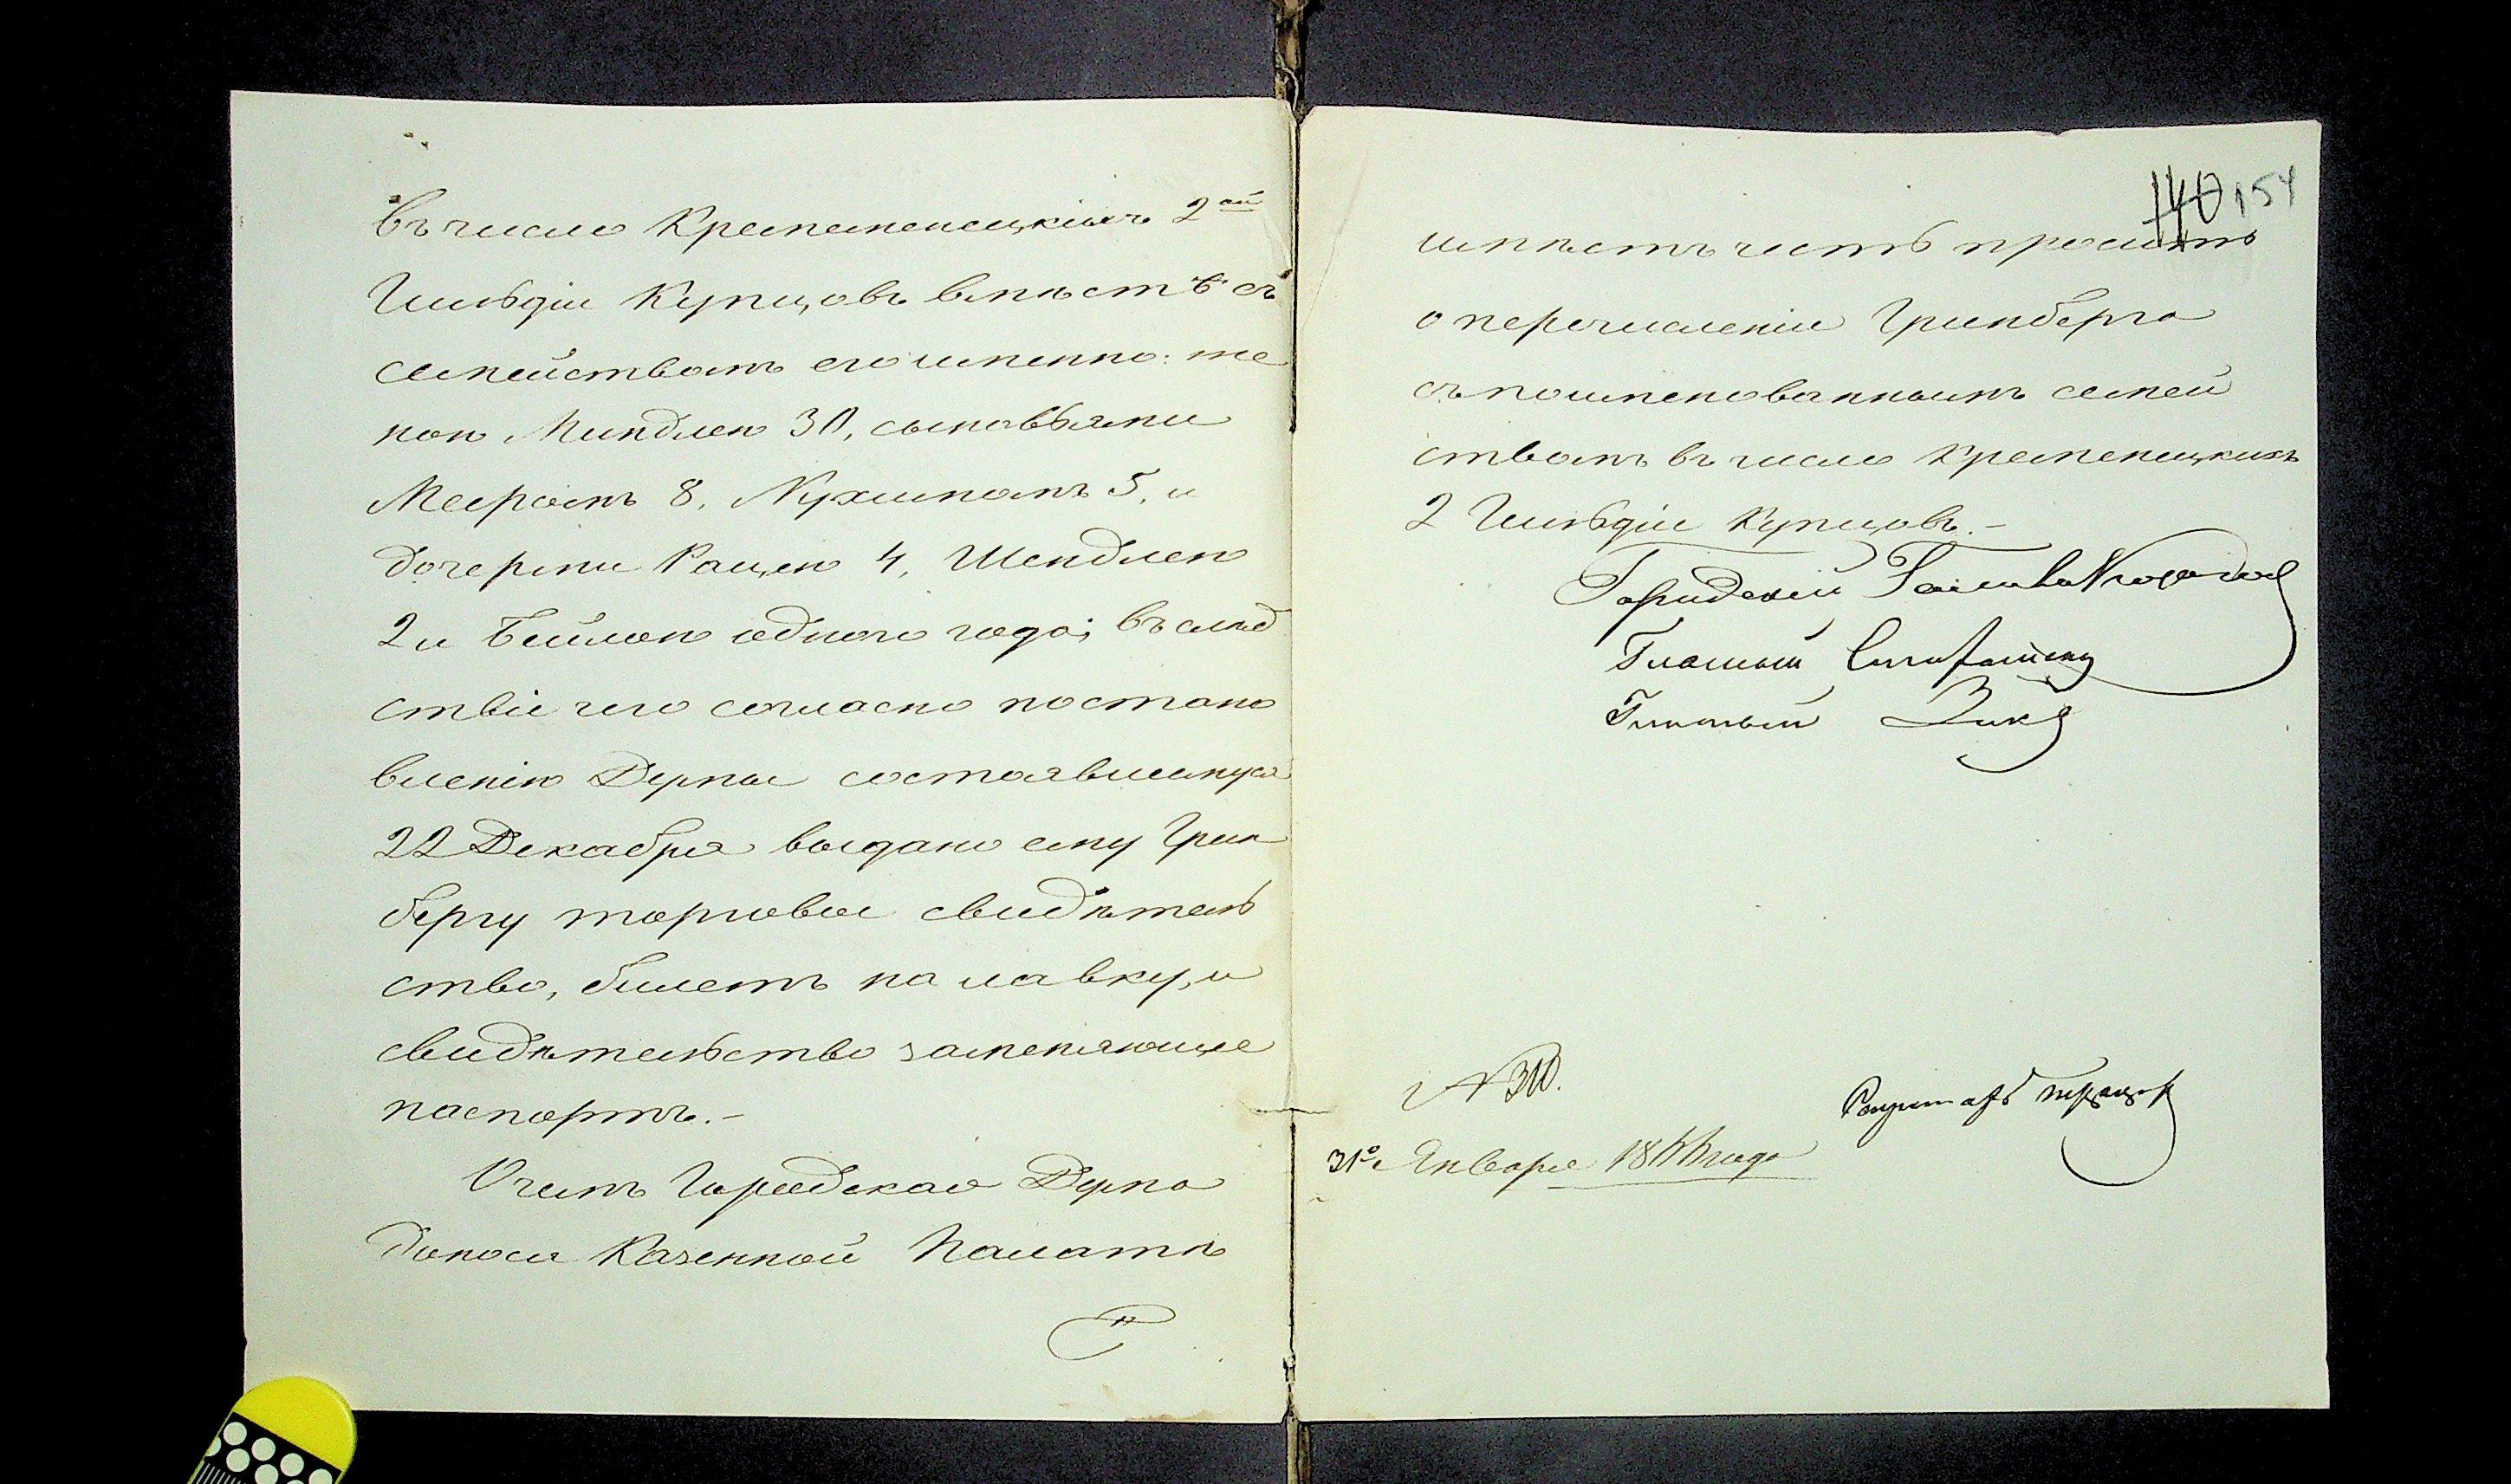 въ число Кременецкихъ 2ой
Гильдіи Купцовъ вмѣстѣ съ
семействомъ его именно: же
ною Миндлею 30, сыновьями
Мееромъ 8, Нухимомъ 5, и
дочерями Рацею 4, Шендлею
2 и Бейлою одного года; въ слѣд
ствіе чего согласно постано
вленію Думы состоявшемуся
22 Декабря выдано ему Грин
бергу торговое свидѣтель
ство, билетъ на лавку, и
свидѣтельство заменяющее
паспортъ.-
О чемъ Городская Дума
донося Казенной Палатѣ
140 154
имѣетъ честь просить
о перечисленіи Гринберга
съ поименованнымъ семей
ствомъ въ число Кременецкихъ
2 Гильдіи Купцовъ.-
Городской Голова
Гласный
Гласный
№ 310.
31го Января 18 года
Секретарь